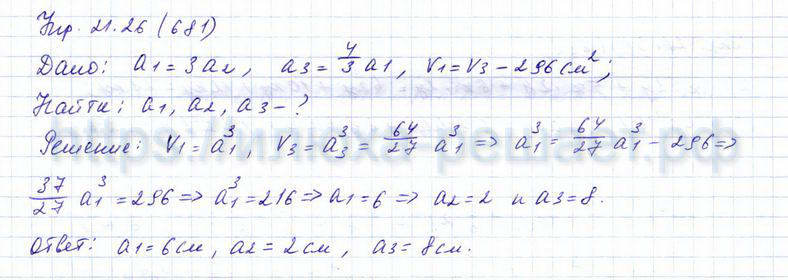 Упр. 21.26 (681)
Дано: a1 = 3a2, a3 = 4/3 a1, V1 = V3 - 296 см²;
Найти: a1, a2, a3 - ?
Решение: V1 = a1³, V3 = a3³ = 64/27 a1³ => a1³ = 64/27 a1³ - 296 =>
37/27 a1³ = 296 => a1³ = 216 => a1 = 6 => a2 = 2 и a3 = 8.
Ответ: a1 = 6 см, a2 = 2 см, a3 = 8 см.